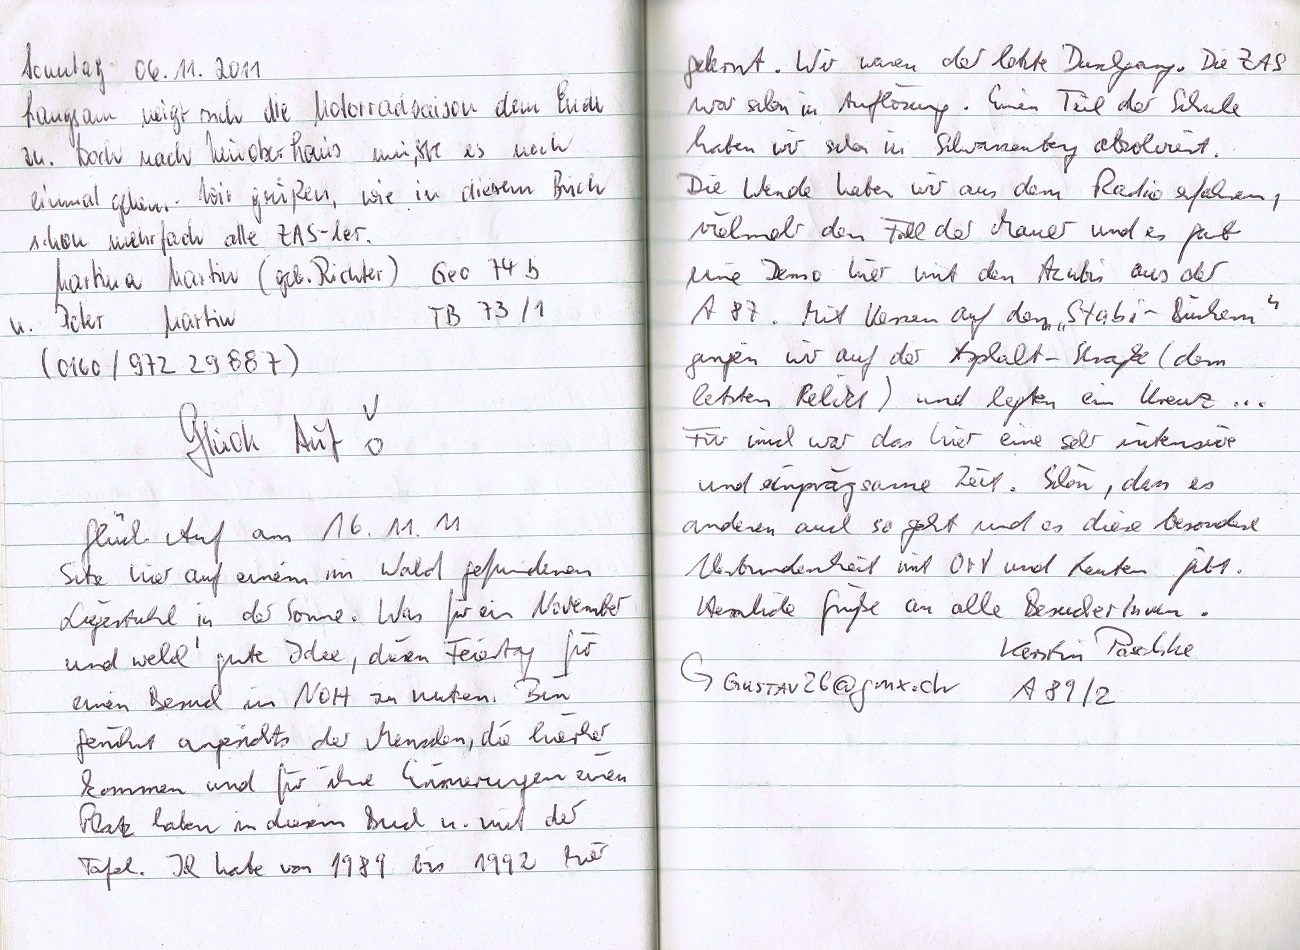 Sonntag 06.11.2011
Langsam neigt sich die Motorradsaison dem Ende
zu. Doch nach mußte es noch
einmal gehen. Wir grüßen, wie in diesem Buch
schon mehrfach alle ZAS-ler.
Martina Martin (geb. Richter) Geo 74 b
u. Peter Martin TB 73/1
(0160/972 29 887)
Glück Auf
Glück Auf am 16.11.11
Sitze hier auf einem im Wald gefundenen
Liegestuhl in der Sonne. Was für ein November
und welch' gute Idee, diesen Feiertag für
einen Besuch in NOH zu nutzen. Bin
gerührt angesichts der Menschen, die hierher
kommen und für ihre Erinnerungen einen
Platz haben in diesem Buch u. mit der
Tafel. Ich habe von 1989 bis 1992 hier
gelernt. Wir waren der letzte Durchgang. Die ZAS
war schon in Auflösung. Einen Teil der Schule
haben wir schon in Schwarzenberg absolviert.
Die Wende haben wir aus dem Radio erfahren,
vielmehr den Fall der Mauer und es gab
eine Demo hier mit den Azubis aus der
A 87. Mit Kerzen auf den „Stabi-Büchern"
gingen wir auf der Asphalt-Straße (dem
letzten Relikt) und legten ein Kreuz ...
Für mich war das hier eine sehr intensive
und einprägsame Zeit. Schön, dass es
anderen auch so geht und es diese besondere
Verbundenheit mit Ort und Leuten gibt.
Herzliche Grüße an alle BesucherInnen.
Kerstin Paschke
GUSTAV26@gmx.ch A 89/2